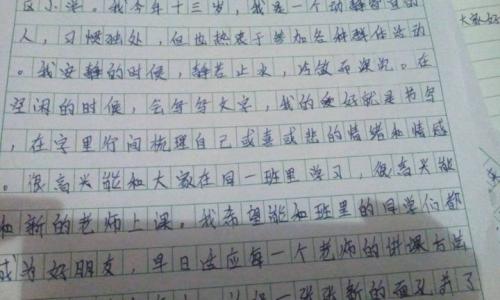 区小学。我今年十三岁，我是一个动静皆宜的
人，习惯独处，但也热衷于参加各种班任活动
。我安静的时候，静若止水，内敛而深沉。在
空闲的时候，会写写文字，我的爱好就是书写
，在字里行间梳理自己或喜或悲的情绪和情感
。很高兴能和大家在同一班里学习，很高兴能
和新的老师上课。我希望能和班里的同学们都
成为好朋友，早日适应每一个老师的讲课方法
一张张新的面孔
大家好